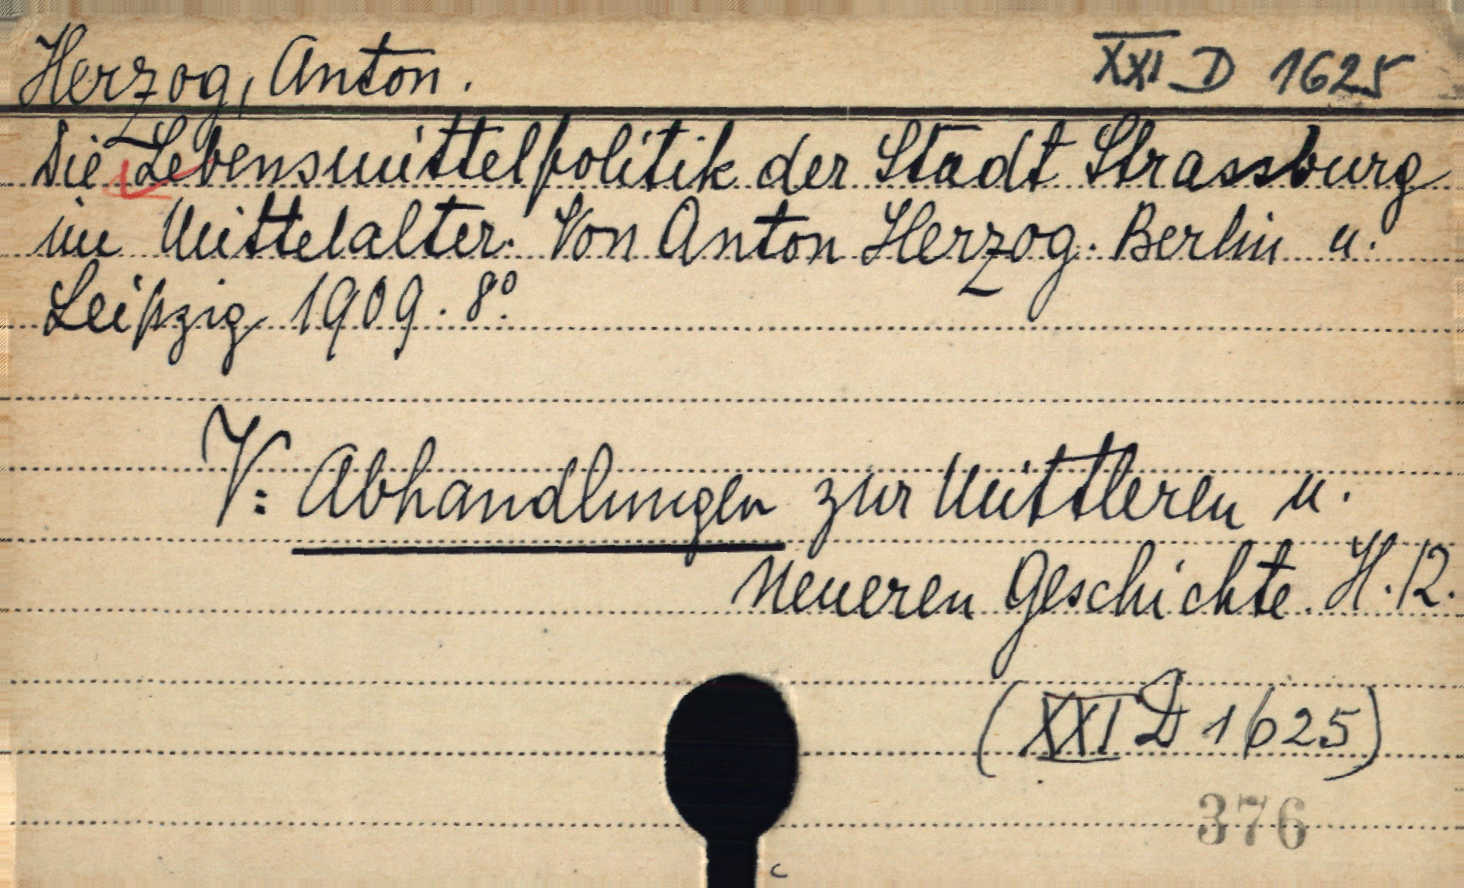 Herzog, Anton. XXI D 1625
Die Lebensmittelpolitik der Stadt Strassburg
im Mittelalter. Von Anton Herzog. Berlin u.
Leipzig 1909. 8°.
V: Abhandlungen zur Mittleren u.
Neueren Geschichte. H. 12.
(XXI D 1625)
376